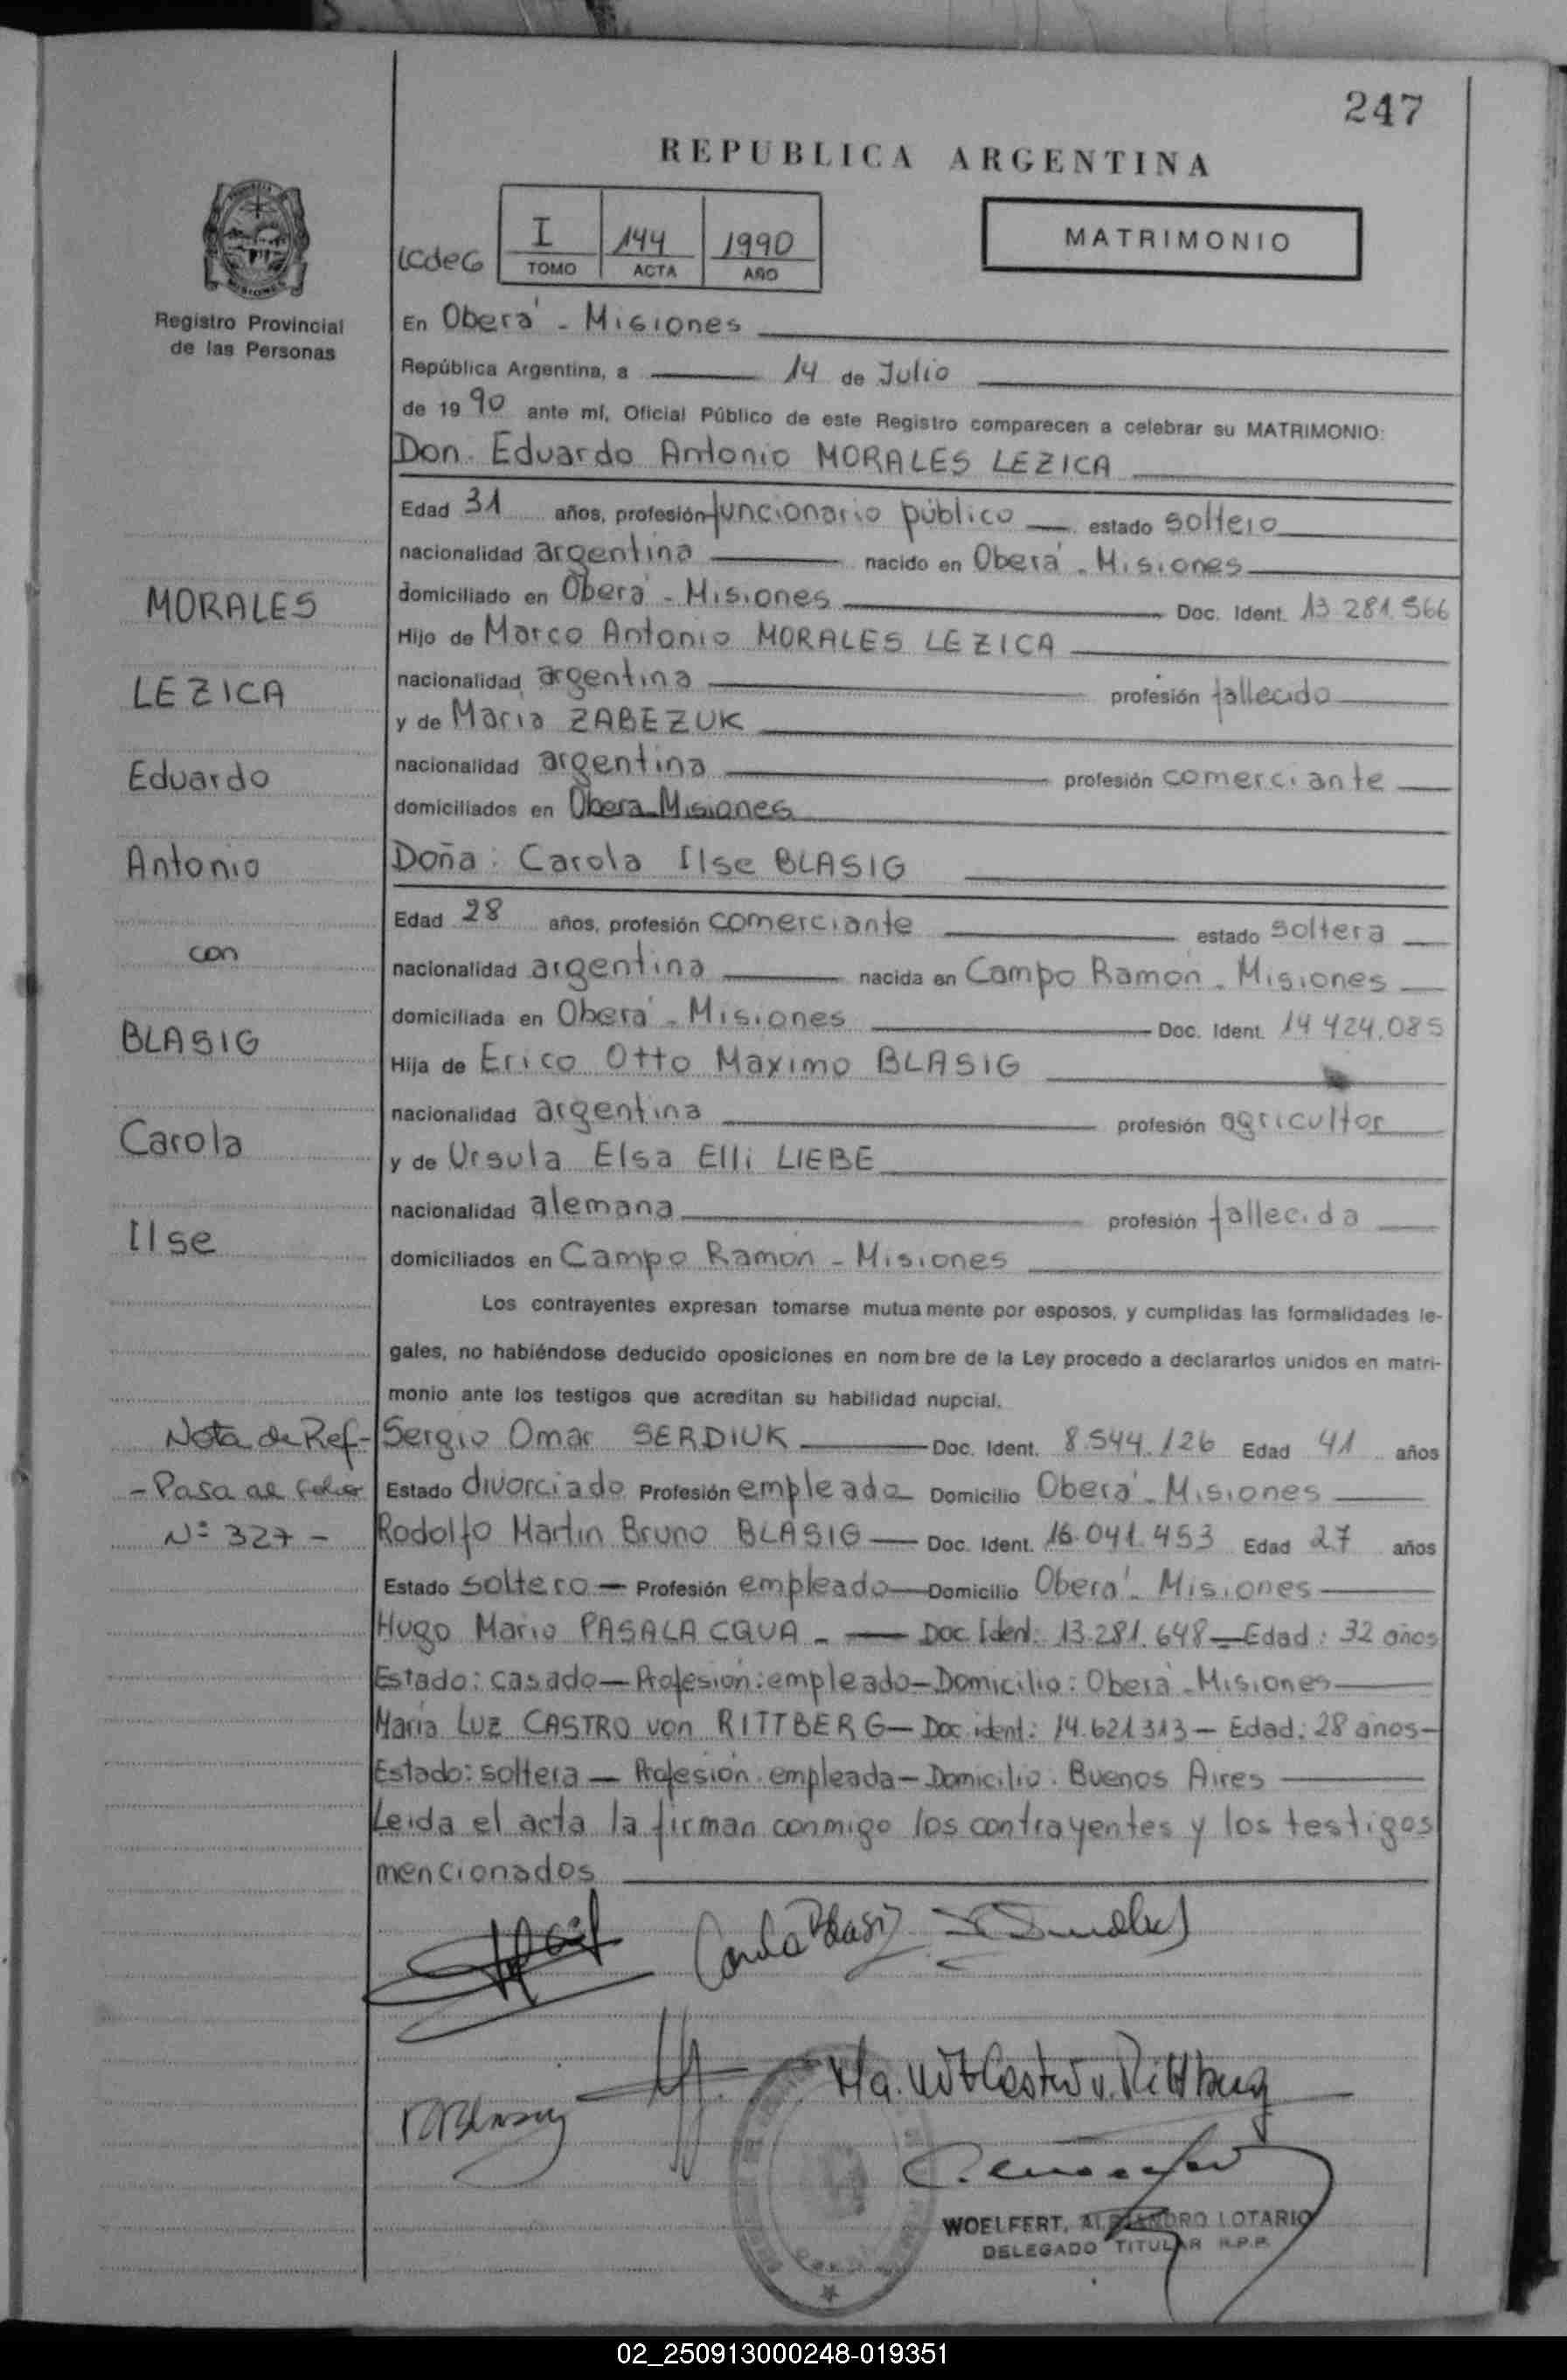 247
REPUBLICA ARGENTINA
LCdeG
I 144 1990
TOMO ACTA AÑO
MATRIMONIO
Registro Provincial
de las Personas
En Oberá - Misiones
República Argentina, a 14 de Julio
de 1990 ante mí, Oficial Público de este Registro comparecen a celebrar su MATRIMONIO:
Don. Eduardo Antonio MORALES LEZICA
Edad 31 años, profesión funcionario público estado soltero
nacionalidad argentina nacido en Oberá - Misiones
domiciliado en Oberá - Misiones Doc. Ident. 13 281.566
Hijo de Marco Antonio MORALES LEZICA
nacionalidad argentina profesión fallecido
y de Maria ZABEZUK
nacionalidad argentina profesión comerciante
domiciliados en Obera Misiones
Doña: Carola Ilse BLASIG
Edad 28 años, profesión comerciante estado soltera
nacionalidad argentina nacida en Campo Ramón - Misiones
domiciliada en Oberá - Misiones Doc. Ident. 14 424.085
Hija de Erico Otto Maximo BLASIG
nacionalidad argentina profesión agricultor
y de Ursula Elsa Elli LIEBE
nacionalidad alemana profesión fallecida
domiciliados en Campo Ramón - Misiones
Los contrayentes expresan tomarse mutua mente por esposos, y cumplidas las formalidades le-
gales, no habiéndose deducido oposiciones en nom bre de la Ley procedo a declararlos unidos en matri-
monio ante los testigos que acreditan su habilidad nupcial.
Sergio Omar SERDIUK Doc. Ident. 8.544.126 Edad 41 años
Estado divorciado Profesión empleado Domicilio Oberá - Misiones
Rodolfo Martin Bruno BLASIG Doc. Ident. 16.041.453 Edad 27 años
Estado soltero Profesión empleado Domicilio Oberá - Misiones
Hugo Mario PASALACQUA - Doc Ident: 13.281.648 Edad: 32 años
Estado: casado — Profesión: empleado — Domicilio: Oberá - Misiones
María Luz CASTRO von RITTBERG — Doc ident: 14.621313 — Edad: 28 años -
Estado: soltera — Profesión. empleada — Domicilio. Buenos Aires
Leida el acta la firman conmigo los contrayentes y los testigos
mencionados
MORALES
LEZICA
Eduardo
Antonio
con
BLASIG
Carola
Ilse
Nota de Ref-
- Pasa al folio
Nº 327 -
Carola Blasig
RBlasig
Ma. Luz Castro v. Rittberg
WOELFERT, ALEJANDRO LOTARIO
DELEGADO TITULAR R.P.P.
02_250913000248-019351